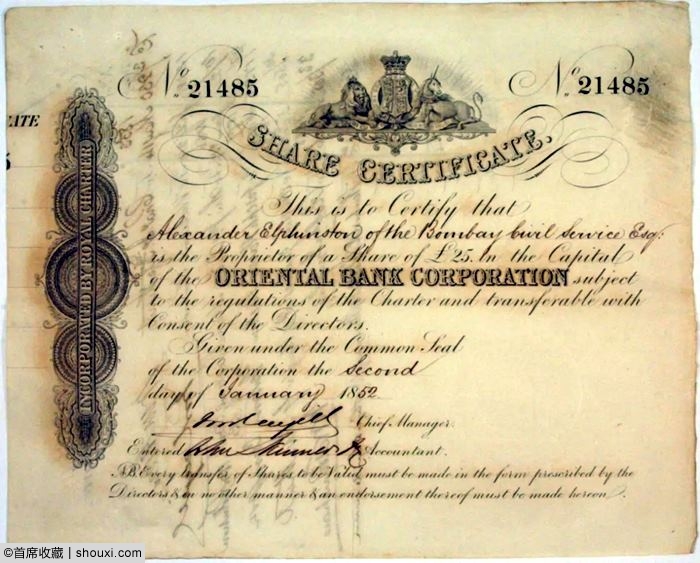 No. 21485
No. 21485
SHARE CERTIFICATE.
ATE
5
INCORPORATED BY ROYAL CHARTER
This is to Certify that
Alexander Elphinston of the Bombay Civil Service Esq:
is the Proprietor of a Share of £25. In the Capital
of the ORIENTAL BANK CORPORATION subject
to the regulations of the Charter and transferable with
Consent of the Directors.
Given under the Common Seal
of the Corporation the Second
day of January 1852
Chief Manager.
Entered Accountant.
N.B. Every transfer of Shares to be Valid must be made in the form prescribed by the
Directors & in no other manner & an endorsement thereof must be made hereon.
©首席收藏 | shouxi.com